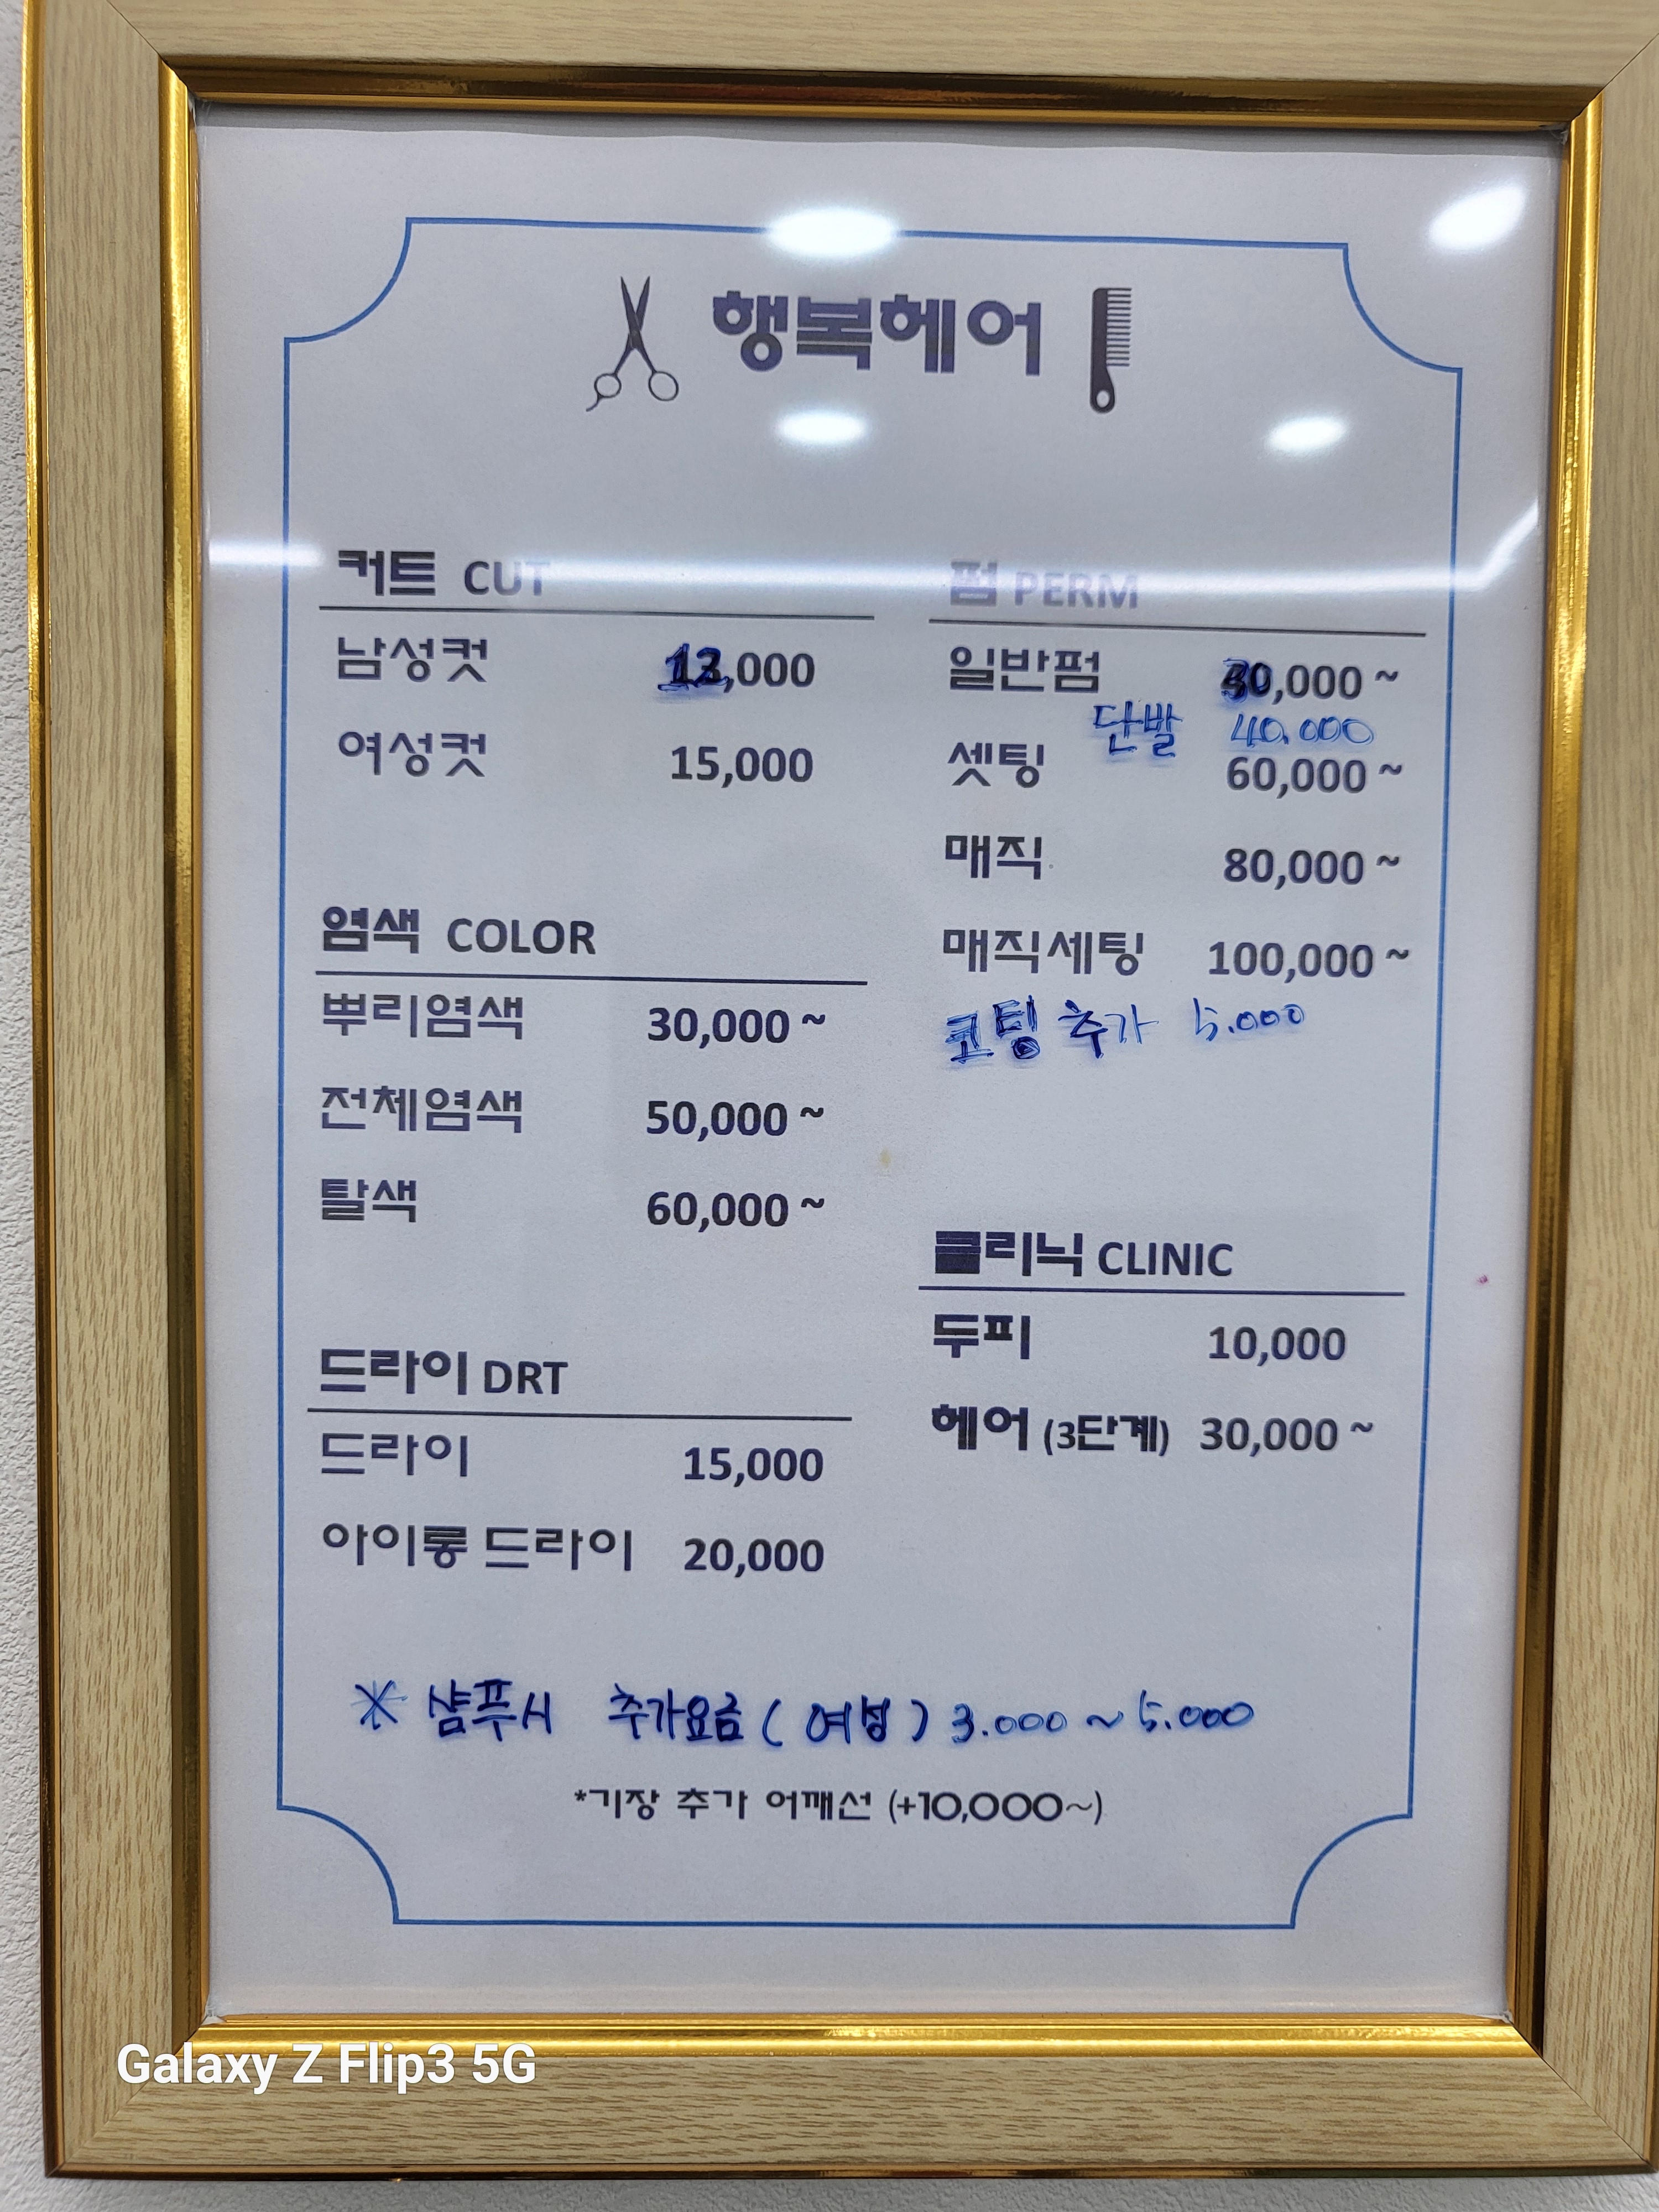 행복헤어
커트 CUT
남성컷 ,000
여성컷 15,000
염색 COLOR
뿌리염색 30,000 ~
전체염색 50,000 ~
탈색 60,000 ~
드라이 DRT
드라이 15,000
아이롱 드라이 20,000
펌 PERM
일반펌 30,000 ~
단발 40.000
셋팅 60,000 ~
매직 80,000 ~
매직세팅 100,000 ~
코팅 추가 5.000
클리닉 CLINIC
두피 10,000
헤어 (3단계) 30,000 ~
※ 샴푸시 추가요금 ( 여성 ) 3.000 ~ 5.000
*기장 추가 어깨선 (+10,000~)
Galaxy Z Flip3 5G